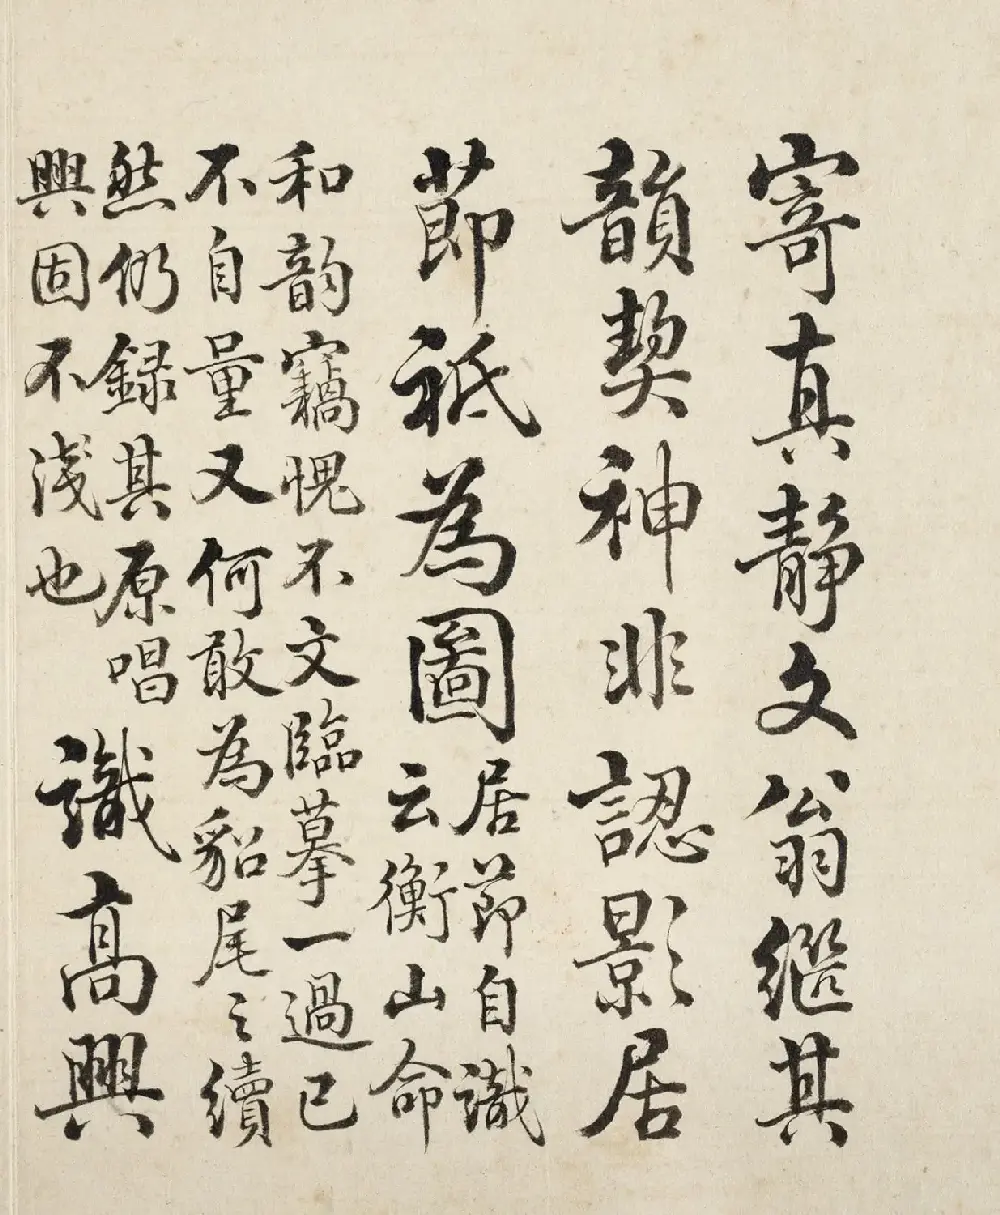 寄真静文翁繼其
韻契神非認影居
節祇為圖
居節自識
云衡山命
和韵竊愧不文臨摹一過已
不自量又何敢為貂尾之續
然仍録其原唱
興固不淺也
識高興